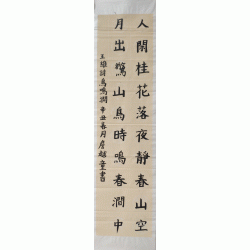 人閑桂花落夜靜春山空
月出驚山鳥時鳴春澗中
王維詩鳥鳴澗辛丑春月